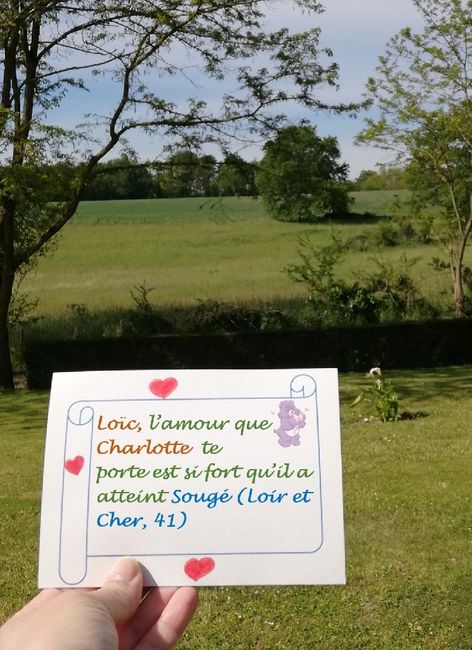 Loïc, l'amour que
Charlotte te
porte est si fort qu'il a
atteint Sougé (Loir et
Cher, 41)